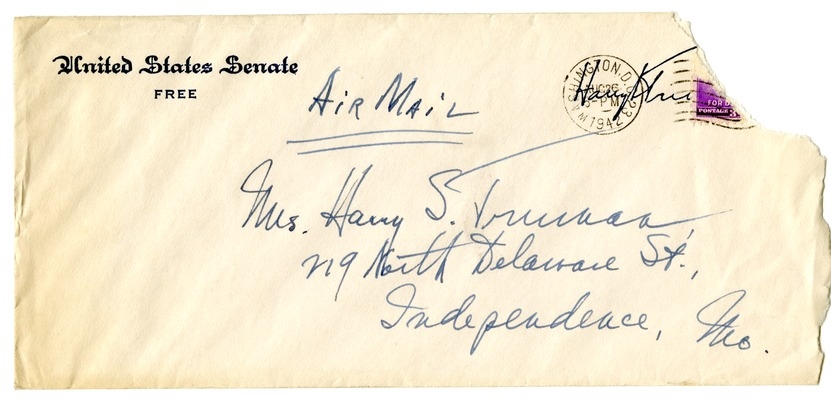 United States Senate
FREE
Air Mail
WASHINGTON, D.C. 23
AUG 26
PM
1942
Harry S Tru
FOR D
POSTAGE 3
Mrs. Harry S. Truman,
219 North Delaware St.,
Independence, Mo.